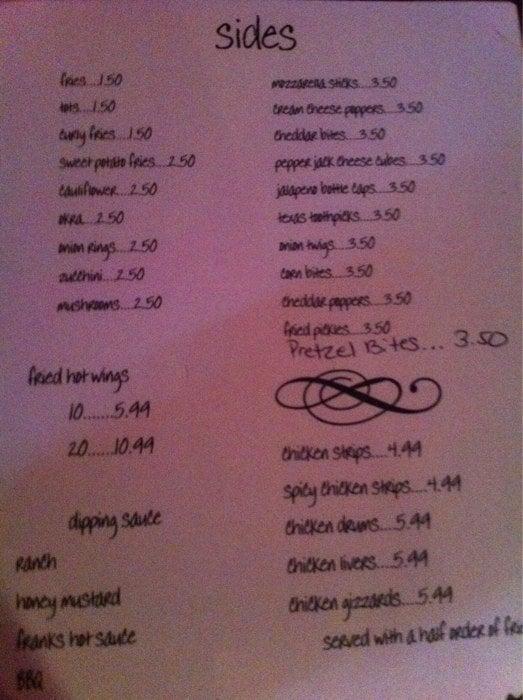 sides
fries...1.50
tots....1.50
curly fries...1.50
sweet potato fries...2.50
cauliflower...2.50
okra...2.50
onion rings...2.50
zucchini...2.50
mushrooms...2.50
mozzarella sticks...3.50
cream cheese poppers...3.50
cheddar bites...3.50
pepper jack cheese cubes...3.50
jalapeno bottle caps....3.50
texas toothpicks....3.50
onion twigs...3.50
corn bites....3.50
cheddar poppers....3.50
fried pickles...3.50
Pretzel Bites... 3.50
fried hot wings
10.......5.99
20......10.99
dipping sauce
ranch
honey mustard
franks hot sauce
BBQ
chicken strips....4.99
spicy chicken strips....4.99
chicken drums...5.99
chicken livers...5.99
chicken gizzards....5.99
served with a half order of